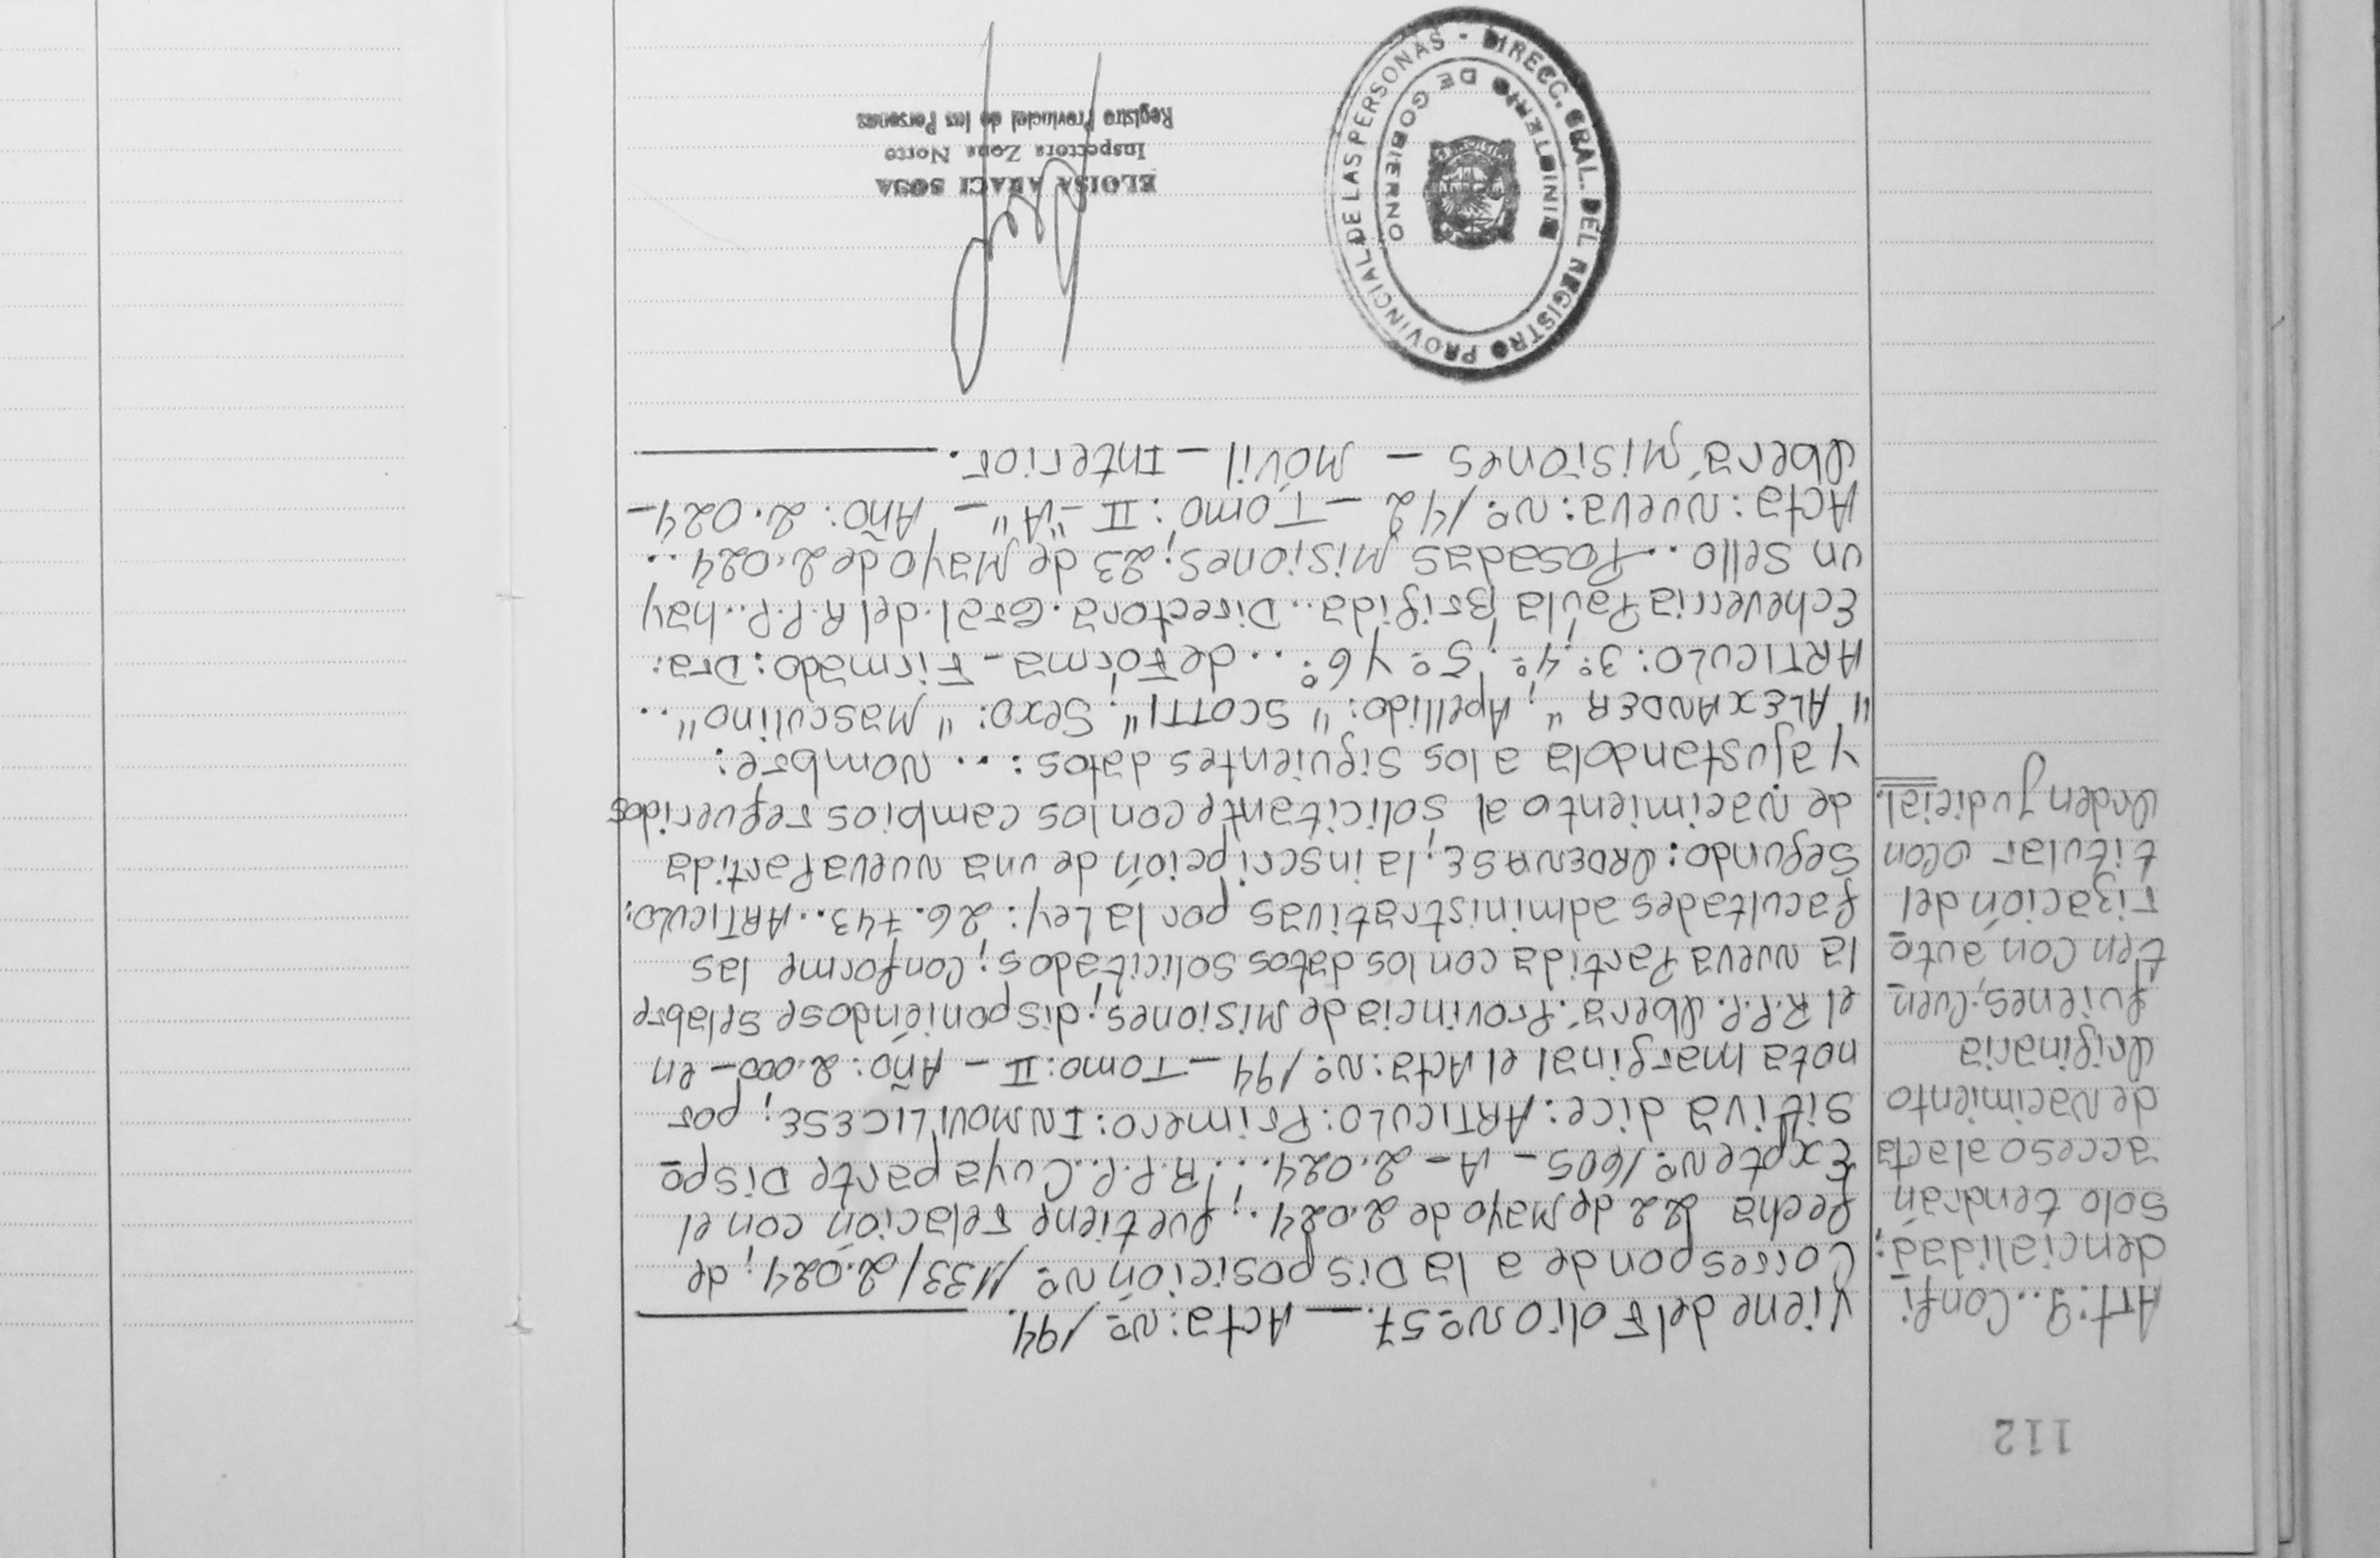 112
Art: 9.. Confi
dencialidad:
solo tendrán
acceso al acta
de Nacimiento
Originaria
quienes; Cuen
ten con auto
rización del
titular o con
Orden Judicial.
Viene del Folio Nº 57. — Acta: Nº 194.
Corresponde a la Disposición Nº 1133/2.024; de
fecha 22 de Mayo de 2.024.; que tiene relación con el
Expte Nº: 1605 - A - 2.024...; R.P.P.. Cuya parte Dispo
sitiva dice: ARTICULO: Primero: INMOVILICESE; por
nota marginal el Acta: Nº: 194 - Tomo: II - Año: 2.000 - en
el R.P.P. Oberá. Provincia de Misiones; disponiéndose se labre
la nueva Partida con los datos solicitados; Conforme las
facultades administrativas por la Ley: 26.743.. ARTICULO:
Segundo: ORDENASE; la inscripción de una nueva Partida
de Nacimiento al solicitante con los cambios requeridos
y ajustandola a los siguientes datos: ... Nombre:
"ALEXANDER"; Apellido: "SCOTTI"; Sexo: "Masculino"...
ARTICULO: 3º; 4º; 5º y 6º: ... de Forma - Firmado: Dra:
Echeverria Paula Brigida.. Directora. Gral. del R.P.P.. hay
un sello... Posadas Misiones; 23 de Mayo de 2.024...
Acta: nueva: Nº: 142 - Tomo: II - "A" - Año: 2.024-
Oberá Misiones - Móvil - Interior.
DIRECC. GRAL. DEL REGISTRO PROVINCIAL DE LAS PERSONAS -
MINISTERIO DE GOBIERNO
MISIONES
ELOISA ARACI SOSA
Inspectora Zona Norte
Registro Provincial de las Personas